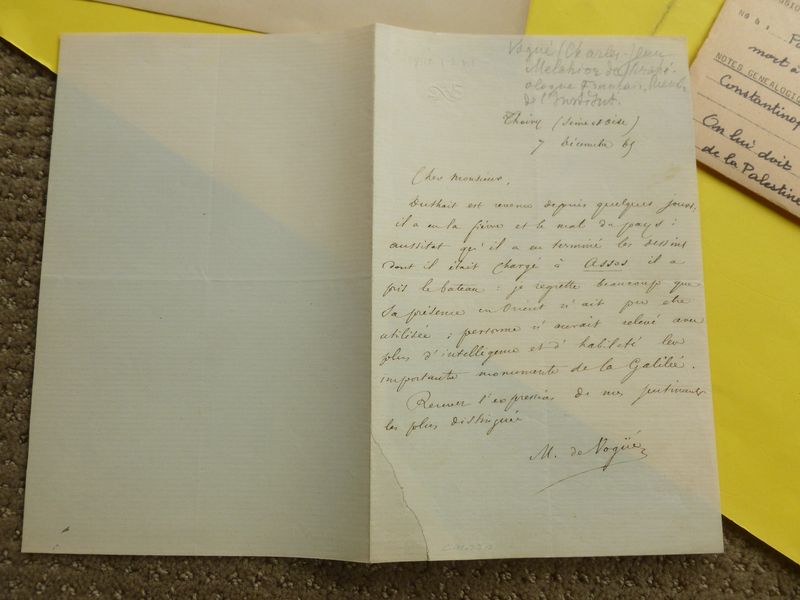 Vogüé (Charles-Jean
Melchior de)
ologue Français, Memb.
de l'Institut.
Thoiry (Seine et Oise)
7 Décembre 65
Cher Monsieur,
Duthoit est revenu depuis quelques jours;
il a eu la fièvre et le mal du pays :
aussitot qu'il a eu terminé les dessins
dont il était chargé à Assos il a
pris le bateau : je regrette beaucoup que
sa présence en Orient n'ait pu etre
utilisée ; personne n'aurait relevé avec
plus d'intelligence et d'habileté les
importants monuments de la Galilée.
Recevez l'expression de mes sentiments
les plus distingués
M. de Vogüé
No 6 :
mort à
NOTES GENEALOGI
Constantinop
On lui doit
de la Palestine